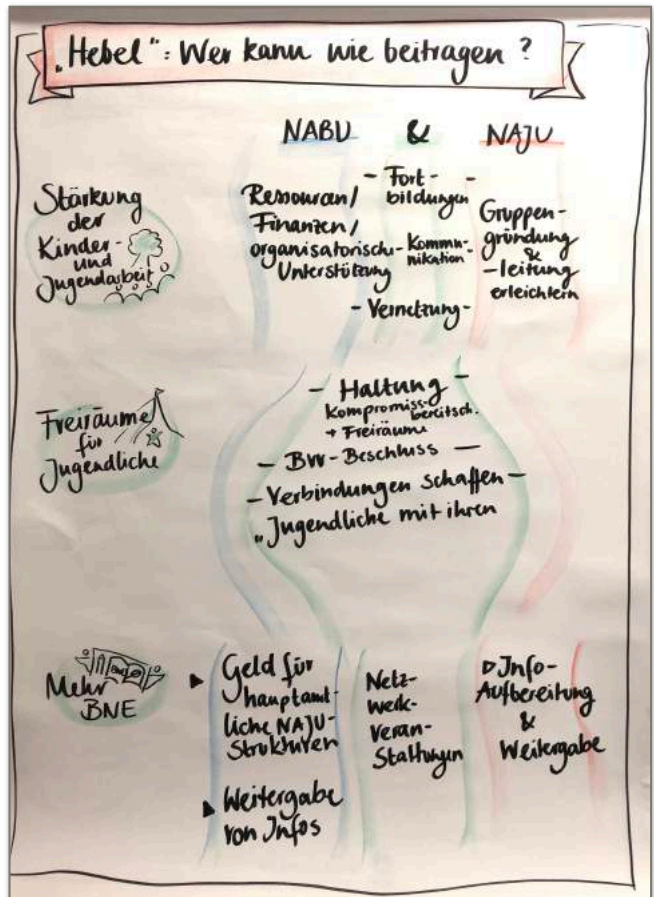 „Hebel": Wer kann wie beitragen?
NABU & NAJU
Stärkung
der
Kinder-
und
Jugendarbeit
Ressourcen/
Finanzen/
organisatorische
Unterstützung
- Fort-
bildungen
- Kommu-
nikation -
- Vernetzung -
Gruppen-
gründung
&
-leitung
erleichtern
Freiräume
für
Jugendliche
- Haltung -
Kompromiss-
bereitsch.
+ Freiräume
- BVV-Beschluss -
- Verbindungen schaffen -
"Jugendliche mit ihren
Mehr
BNE
Geld für
hauptamt-
liche NAJU-
Strukturen
Weitergabe
von Infos
Netz-
werk-
veran-
staltungen
Info-
Aufbereitung
&
Weitergabe